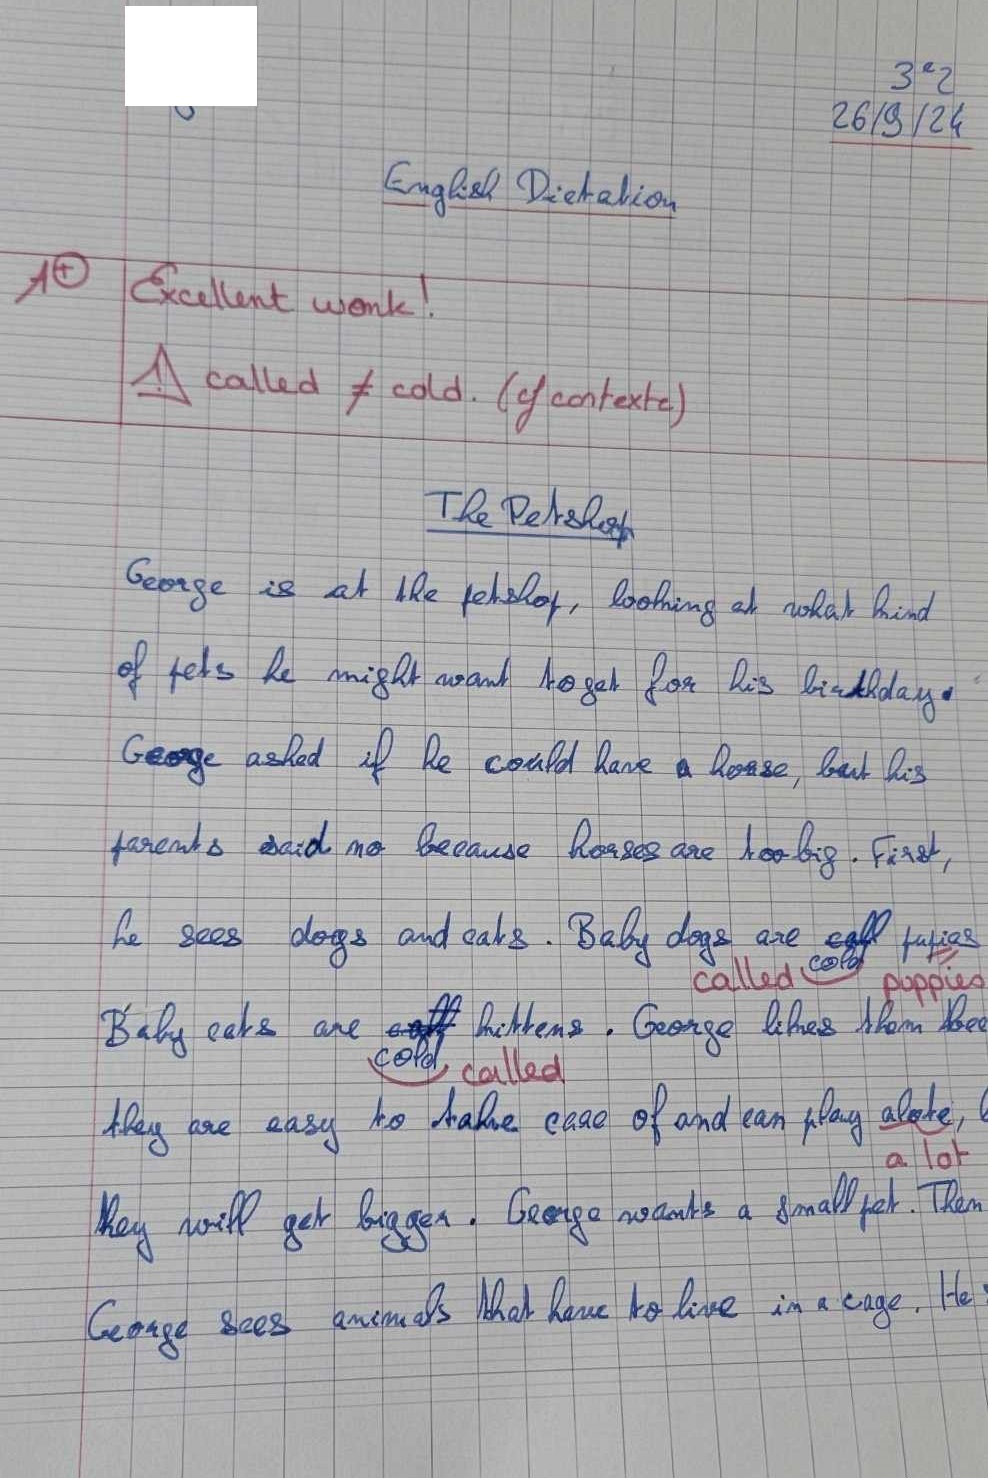 3e2
26/9/24
English Dictation
A+
Excellent work!
⚠ called ≠ cold. (cf contexte)
The Petshop
George is at the petshop, looking at what kind
of pets he might want to get for his birthday.
George asked if he could have a horse, but his
parents said no because horses are too big. First,
he sees dogs and cats. Baby dogs are cold pupies
called puppies
Baby cats are kittens. George likes them bec
cold called
they are easy to take care of and can play alote,
a lot
they will get bigger. George wants a small pet. Then
George sees animals that have to live in a cage. He